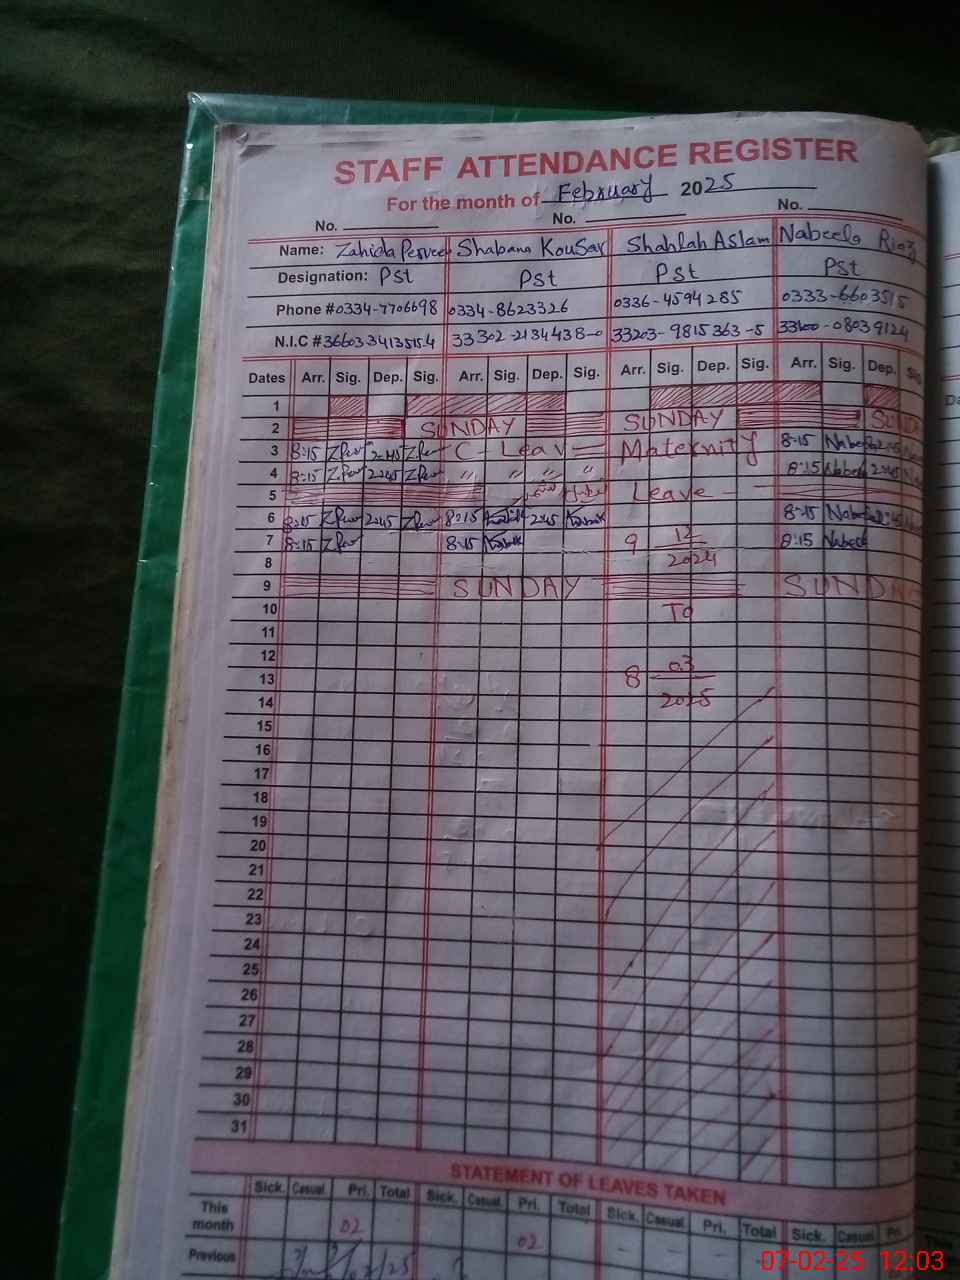 STAFF ATTENDANCE REGISTER
For the month of February 2025
No. No. No.
Name: Zahida Perveen Shabana Kousar Shahlah Aslam Nabeela Riaz
Designation: Pst Pst Pst Pst
Phone # 0334-7706698 0334-8623326 0336-4594285 0333-6603515
N.I.C # 33302-2134438-0 33203-9815363-5
Dates Arr. Sig. Dep. Sig. Arr. Sig. Dep. Sig. Arr. Sig. Dep. Sig. Arr. Sig. Dep. Sig.
1
2 SUNDAY SUNDAY
3 8:15 2:45 C-Leav Maternity 8:15
4 8:15 2:45 " " " " 8:15 2:45
5 Leave
6 8:15 2:45 8:15 2:45 8:15
7 8:15 8:15 9 12 8:15
8 2024
9 SUNDAY
10 To
11
12
13 8 03
14 2025
15
16
17
18
19
20
21
22
23
24
25
26
27
28
29
30
31
STATEMENT OF LEAVES TAKEN
Sick. Casual. Pri. Total Sick. Casual. Pri. Total Sick. Casual. Pri. Total Sick. Casual. Pri.
This month 02 02 - - -
Previous
07-02-25 12:03